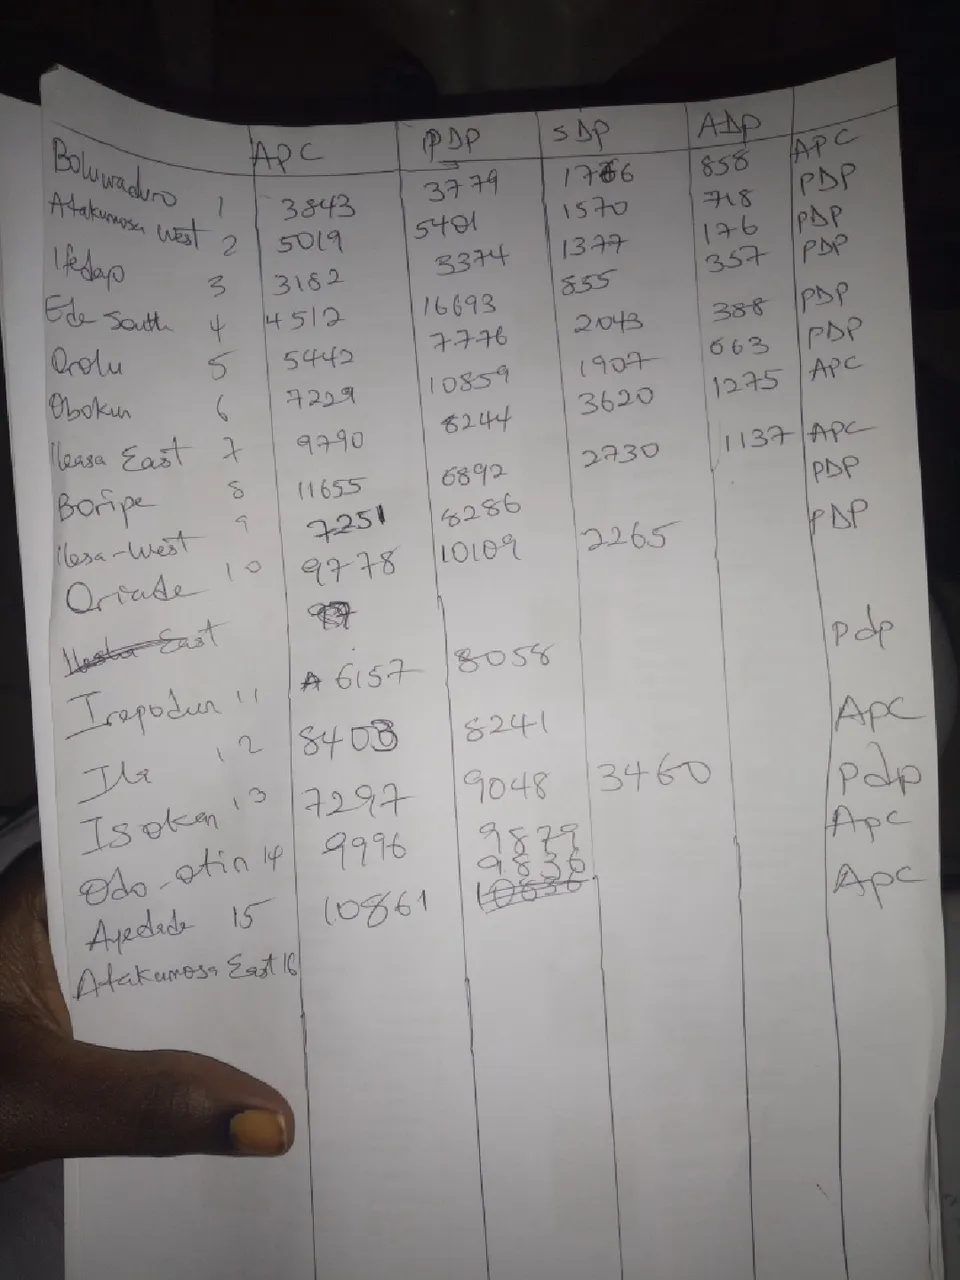 APC PDP SDP ADP
Boluwaduro 1 3843 3779 1766 858 APC
Atakumosa West 2 5019 5401 1570 718 PDP
Ifedap 3 3182 3374 1377 176 PDP
Ede South 4 4512 16693 855 357 PDP
Orolu 5 5442 7776 2043 388 PDP
Obokun 6 7229 10859 1907 663 PDP
Ileasa East 7 9790 8244 3620 1275 APC
Boripe 8 11655 6892 2730 1137 APC
Ilesa-West 9 7251 8286 PDP
Oriade 10 9778 10109 2265 PDP
East
Irepodun 11 6157 8058 Pdp
Ila 12 8403 8241 APC
Isokan 13 7297 9048 3460 Pdp
Odo-otin 14 9996 9879 Apc
Ayedade 15 10861 9836 Apc
10836
Atakumosa East 16